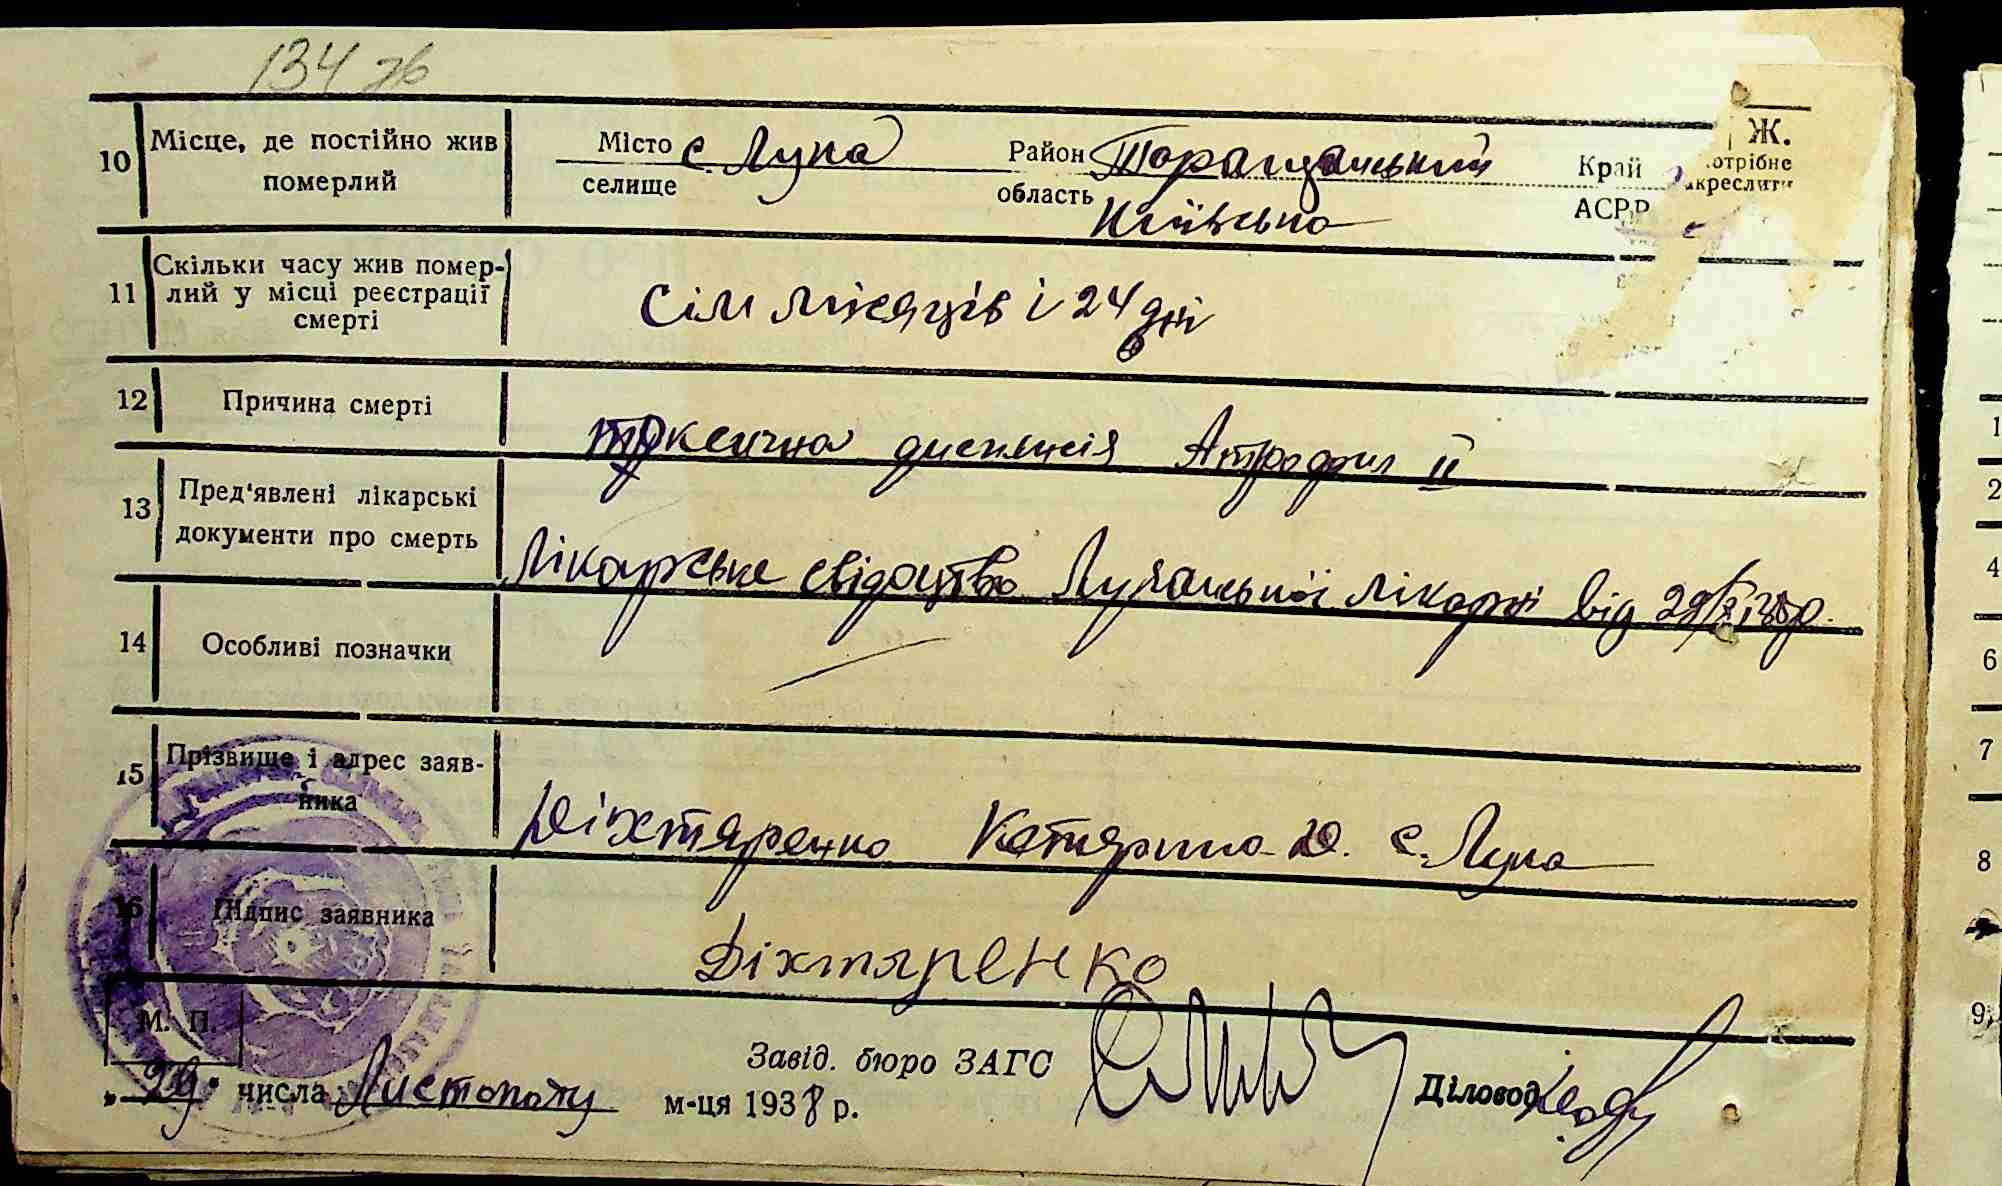 134 зв
Ж.
10 Місце, де постійно жив Місто с. Лука Район Таращанський Край отрібне
померлий селище область Київська АСРР акреслити
11 Скільки часу жив помер-
лий у місці реєстрації сім місяців і 24 дні
смерті
12 Причина смерті токсична диспепсія Атрофия II
13 Пред'явлені лікарські
документи про смерть Лікарське свідоцтво Лучанської лікарні від
14 Особливі позначки
15 Прізвище і адрес заяв-
ника Діхтяренко Катерина Ю. с. Лука
16 Підпис заявника Діхтяренко
М. П.
Завід. бюро ЗАГС
„29" числа Листопаду м-ця 1938 р. Діловод
1
2
4
6
7
8
9